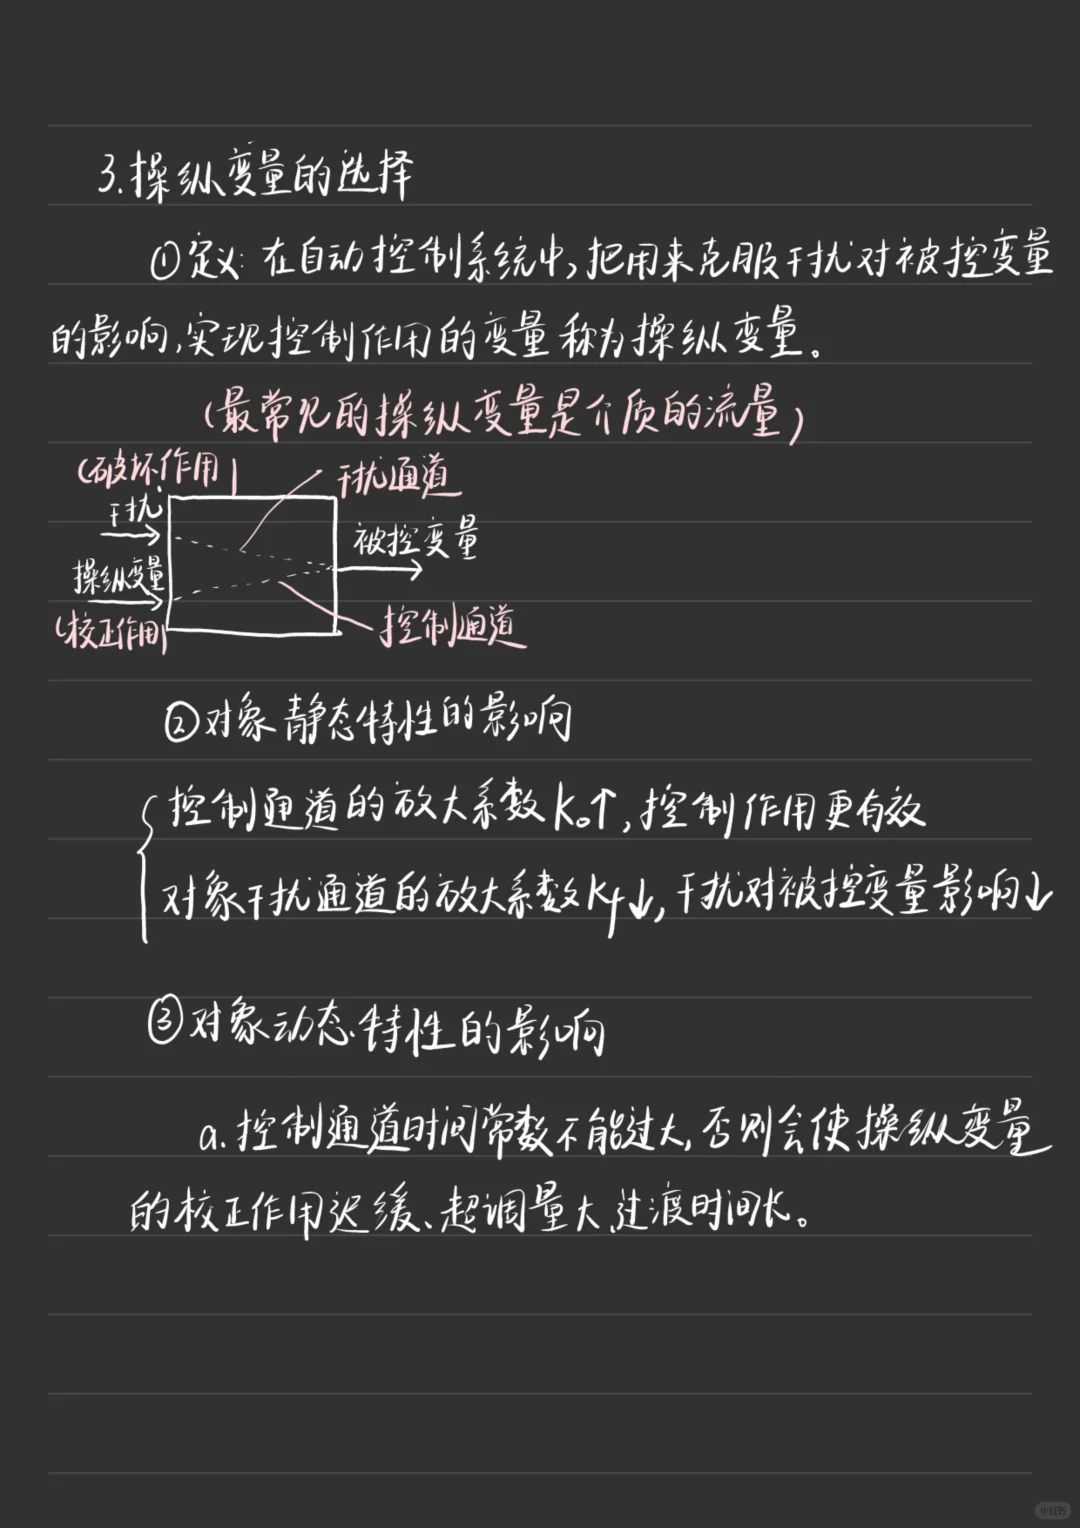 3.操纵变量的选择
①定义:在自动控制系统中,把用来克服干扰对被控变量
的影响,实现控制作用的变量称为操纵变量。
(最常见的操纵变量是介质的流量)
(破坏作用)
干扰通道
干扰
被控变量
操纵变量
(校正作用)
控制通道
②对象静态特性的影响
控制通道的放大系数K₀↑,控制作用更有效
对象干扰通道的放大系数Kf↓,干扰对被控变量影响↓
③对象动态特性的影响
a.控制通道时间常数不能过大,否则会使操纵变量
的校正作用迟缓、超调量大、过渡时间长。
小红书